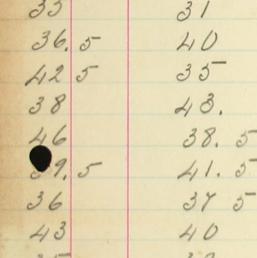 35 31
36. 5 40
42 5 35
38 43.
46 38. 5
39. 5 41. 5
36 37 5
43 40